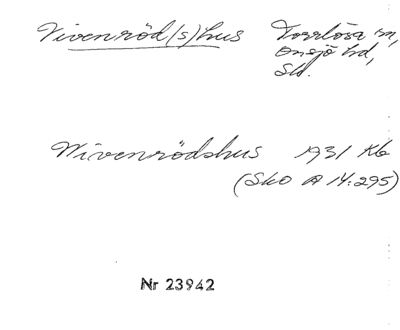 Vivenröd(s)hus Torrlösa sn,
Onsjö hd,
Sk.
Wivenrödshus 1931 Kb
(SkO A 14:295)
Nr 23942